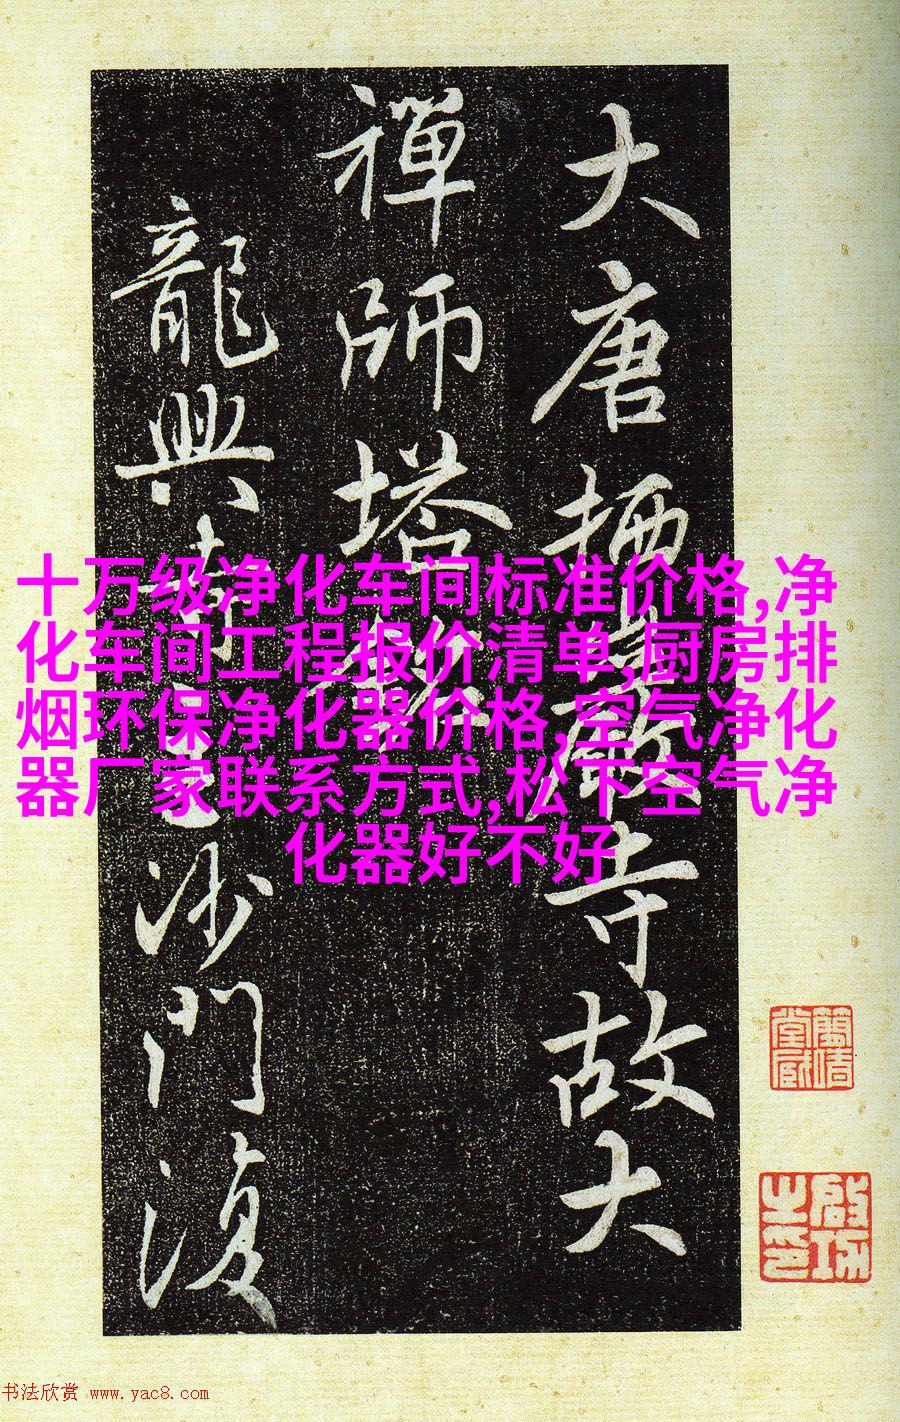 大唐栖巖寺故大
禪師塔銘
龍興寺沙門復
十万级净化车间标准价格,净
化车间工程报价清单,厨房排
烟环保净化器价格,空气净化
器厂家联系方式,松下空气净
化器好不好
蘭晴堂藏
啟功之印
书法欣赏 www.yac8.com